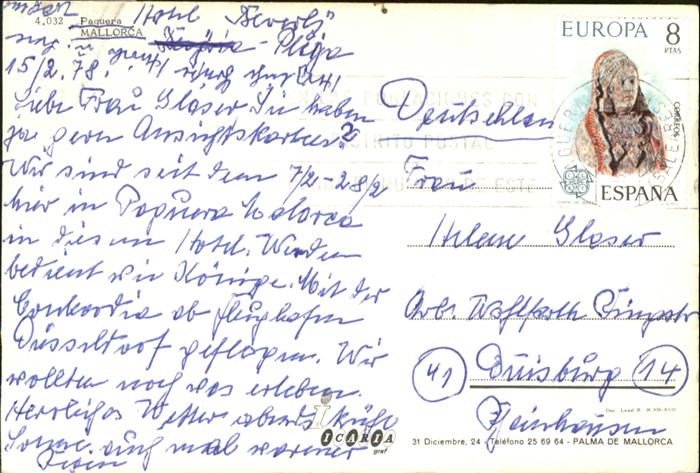 4.032 Paguera
MALLORCA
Hotel "Beverly"
Playa
15/2.78.
Liebe Frau Glaser Sie haben
ja gern Ansichtskarten?
Wir sind seit dem 7/2-28/2
hier in Paguera Malorca
in diesem Hotel. Werden
bedient wie Könige. Mit der
Conkordia ab Flughafen
Düsseldorf geflogen. Wir
wollten noch was erleben.
Herrliches Wetter abends kühl
Sonne. auch mal warmer
EUROPA 8
PTAS
CORREOS
ESPAÑA
Deutschland
Frau
Helene Glaser
41 Duisburg 14
Rheinhausen
ICARIA
graf
Dep. Legal B.
31 Diciembre, 24 - Teléfono 25 69 64 - PALMA DE MALLORCA